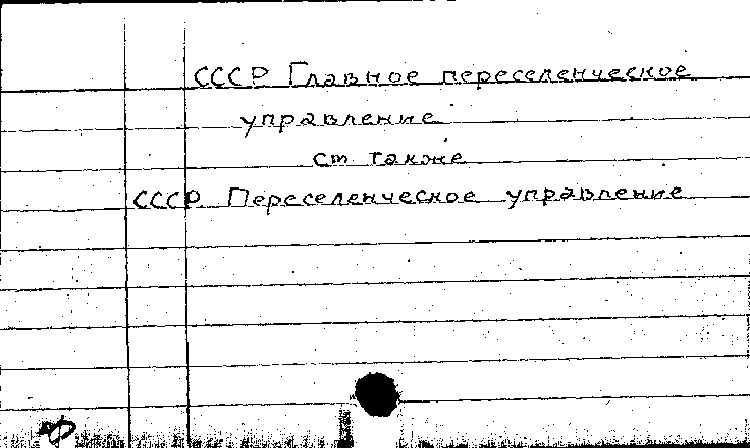 СССР Главное переселенческое
управление
см. также
СССР. Переселенческое управление